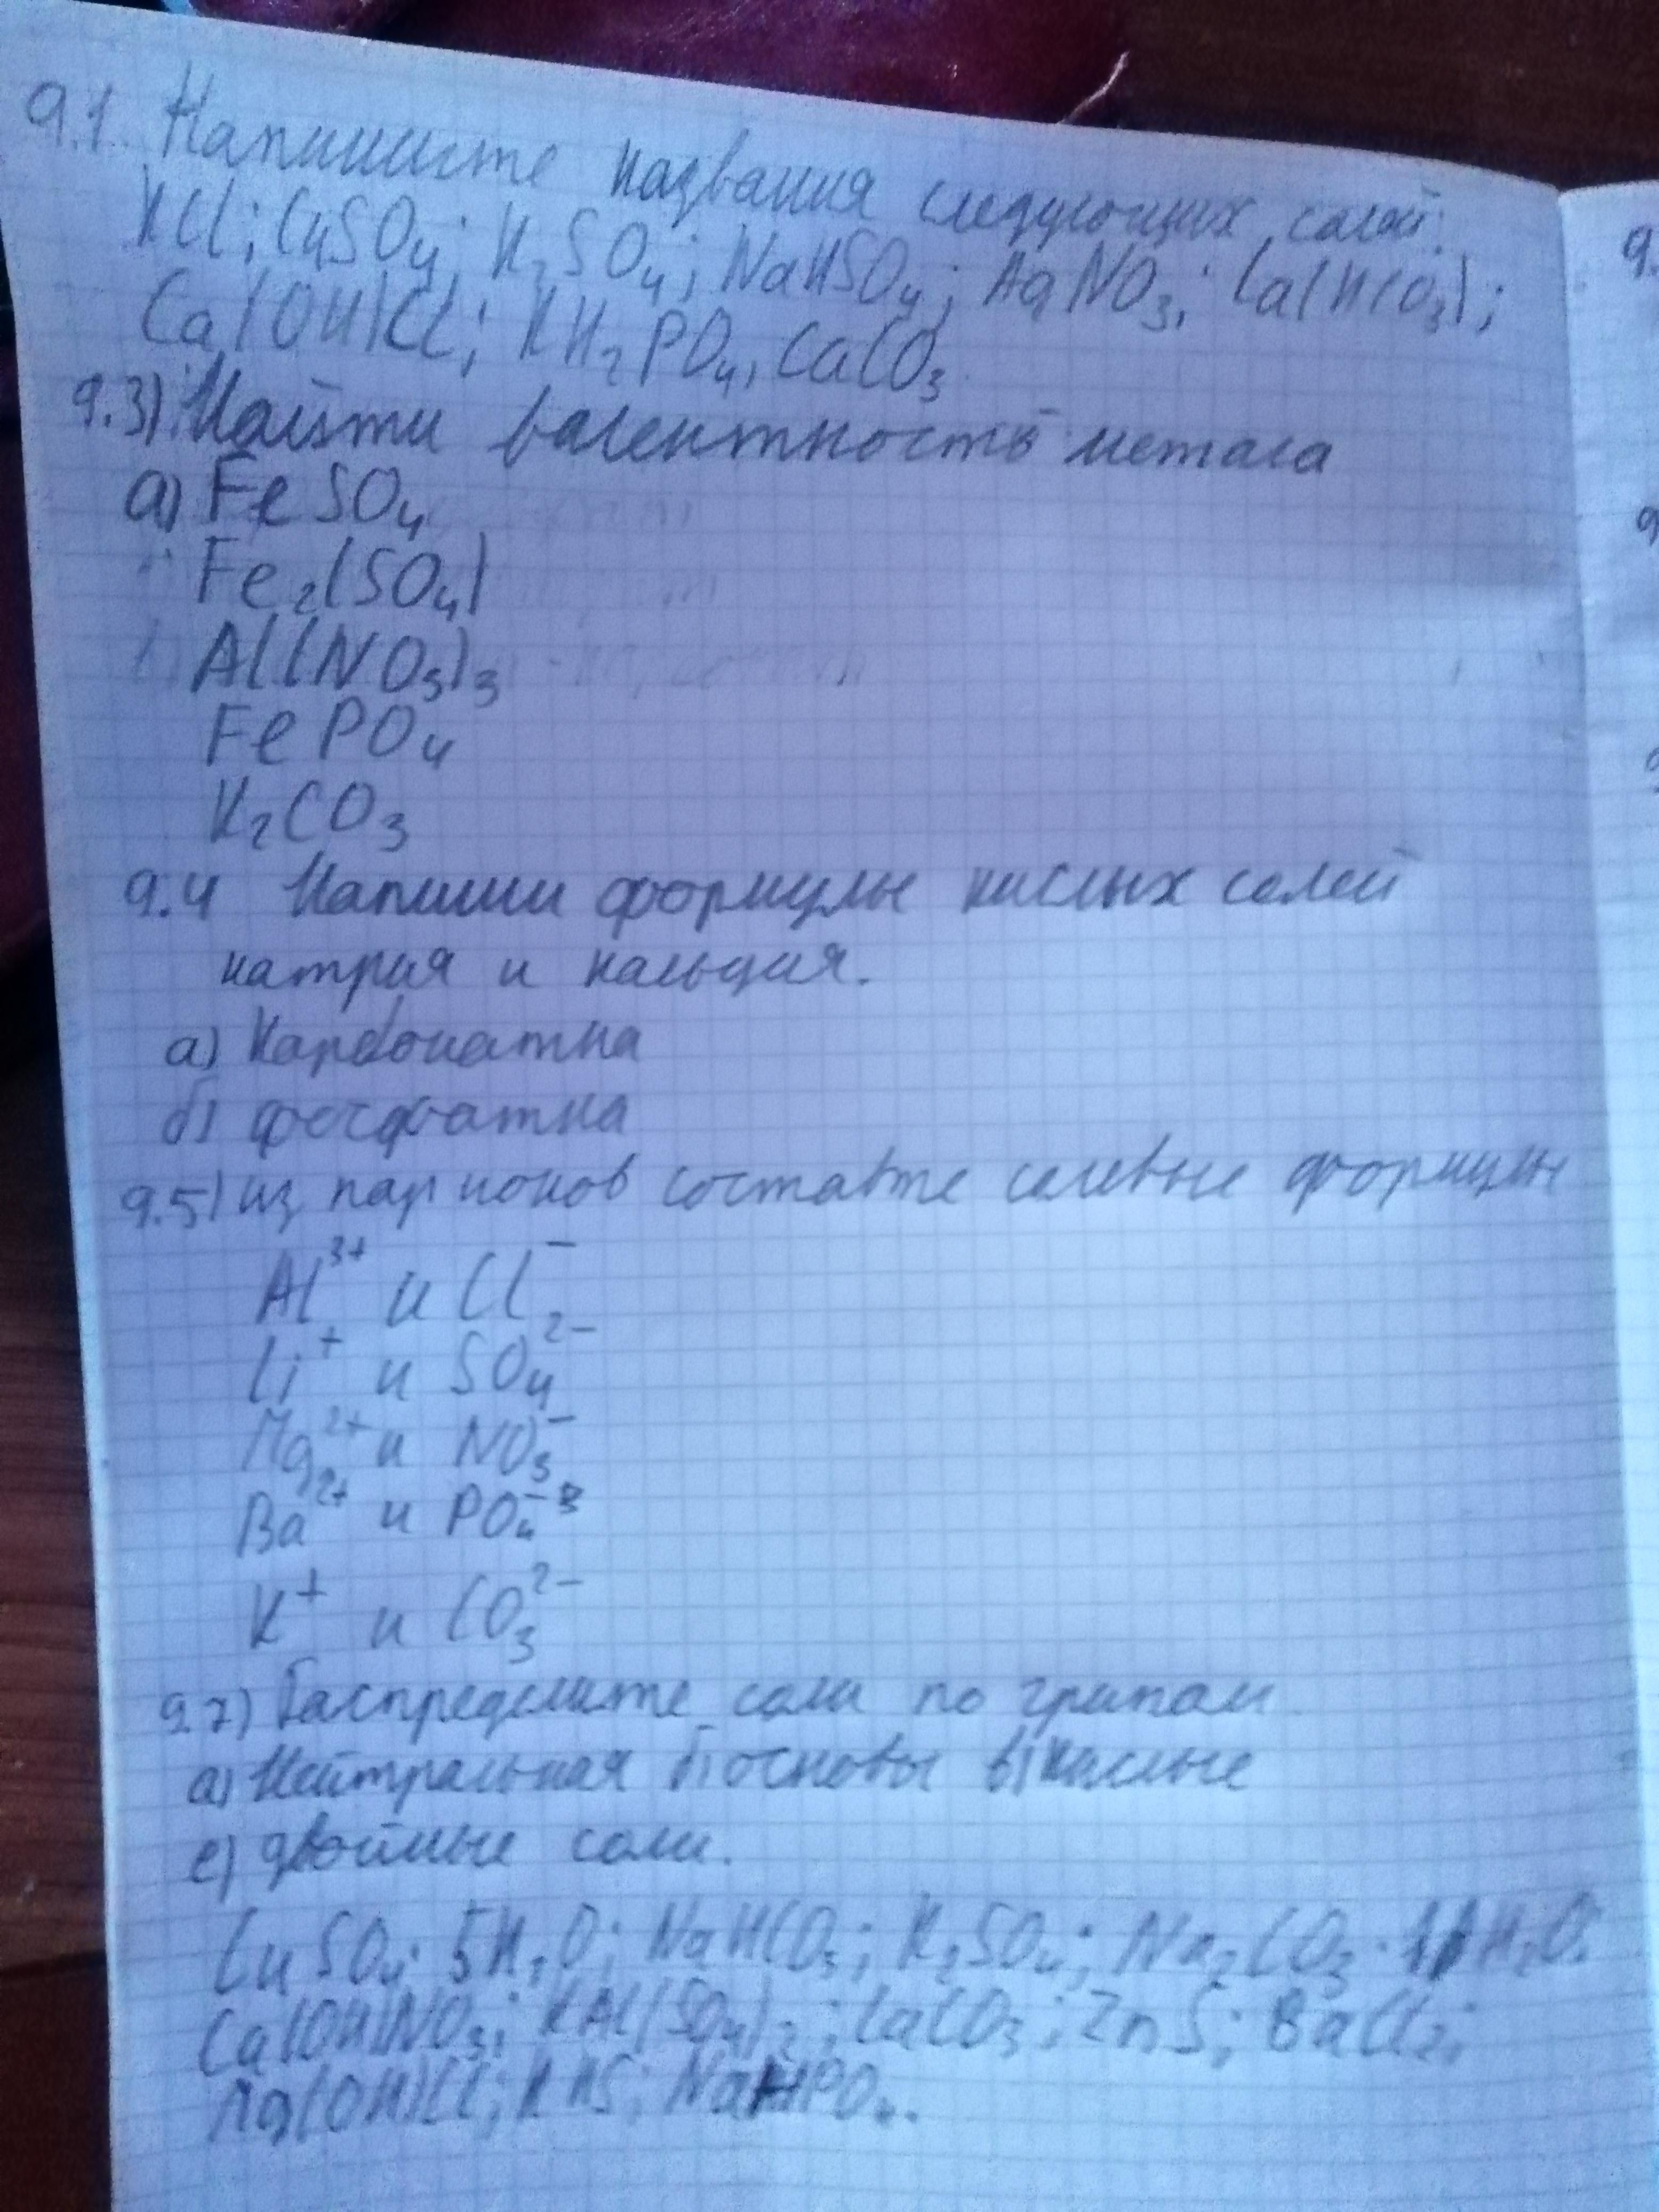 9.1. Напишите названия следующих солей:
KCl; CuSO₄; K₂SO₄; NaHSO₄; AgNO₃; Ca(HCO₃);
Ca(OH)Cl; KH₂PO₄, CaCO₃.
9.3) Найти валентность метала
а) FeSO₄
Fe₂(SO₄)
Al(NO₃)₃
FePO₄
K₂CO₃
9.4 Напиши формулы кислых солей
натрия и кальция.
а) Карбонатна
б) фосфатна
9.5) из пар ионов составте солевые формулы
Al³⁺ и Cl⁻
Li⁺ и SO₄²⁻
Mg²⁺ и NO₃⁻
Ba²⁺ и PO₄⁻³
K⁺ и CO₃²⁻
9.7) Распределите соли по групам
а) Нейтральная б) основы в) кислые
е) двойные соли.
CuSO₄·5H₂O; NaHCO₃; K₂SO₄; Na₂CO₃·H₂O.
Ca(OH)NO₃; KAl(SO₄)₂; CaCO₃; ZnS; BaCl₂;
Mg(OH)Cl; KHS; NaHPO₄.
9.